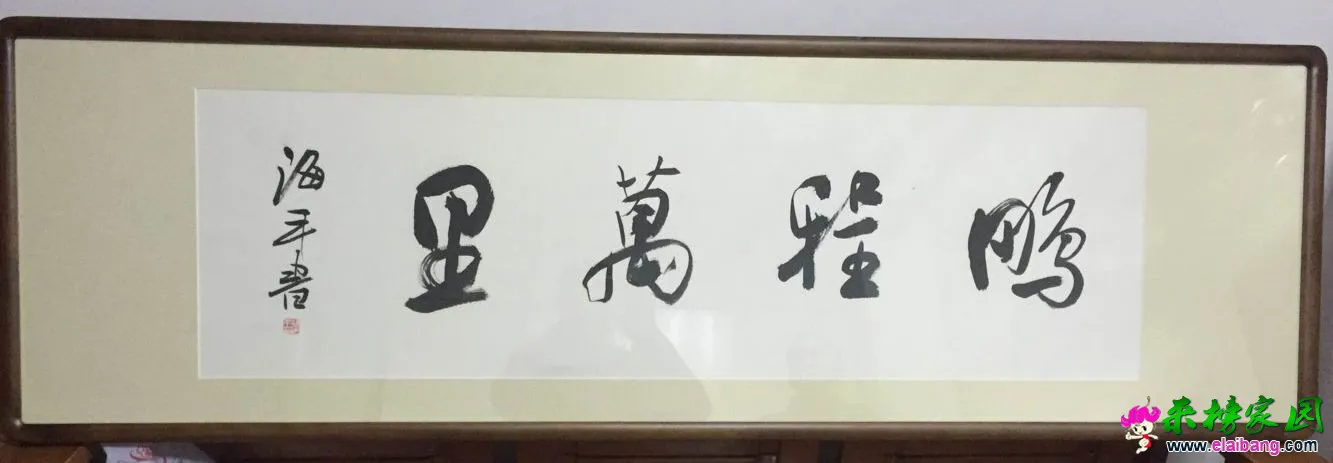 鹏程萬里
海平书
来榜家园
www.elaibang.com